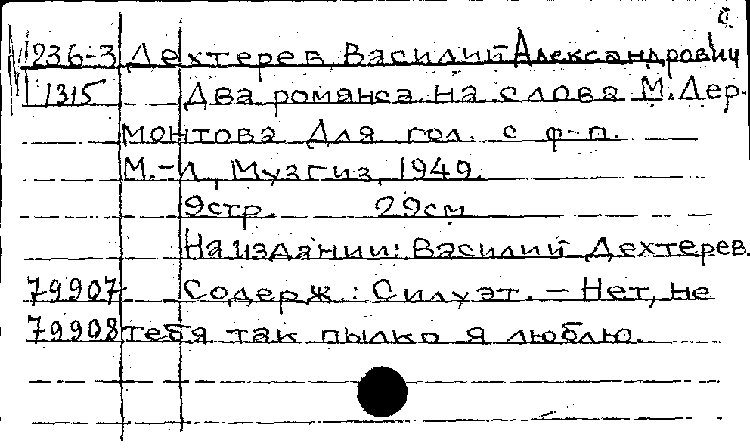 236-3 Дехтерев, Василий Александрович
1315 Два романса на слова М.Лер-
монтова для гол. с ф-п.
М.-Л, Музгиз, 1949.
9стр. 29см
На издании: Василий Дехтерев.
79907 Содерж.: Силуэт. – Нет, не
79908 тебя так пылко я люблю.